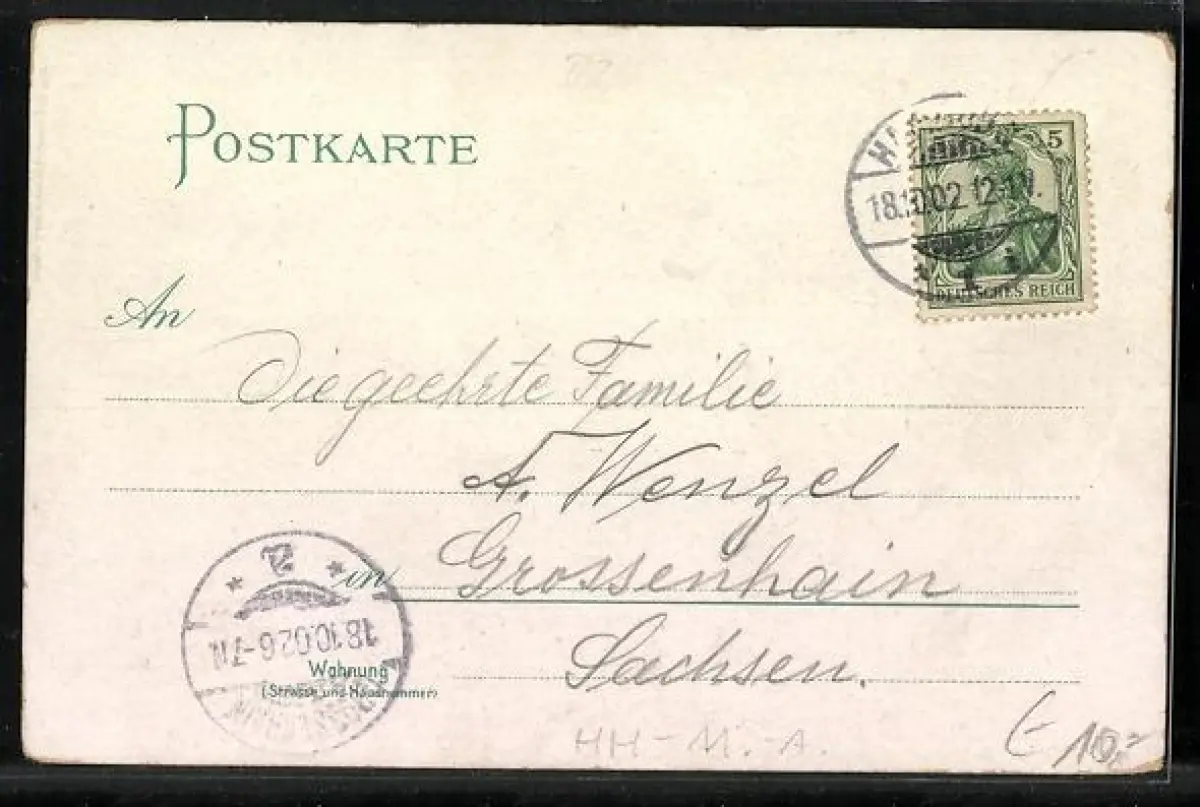 POSTKARTE
5
18.10.02 12-1N.
DEUTSCHES REICH
An
Die geehrte Familie
A. Wenzel
in Grossenhain
a
* *
18.10.02 6-7N
Wohnung
(Strasse und Hausnummer)
Sachsen.
HH-M.-A.